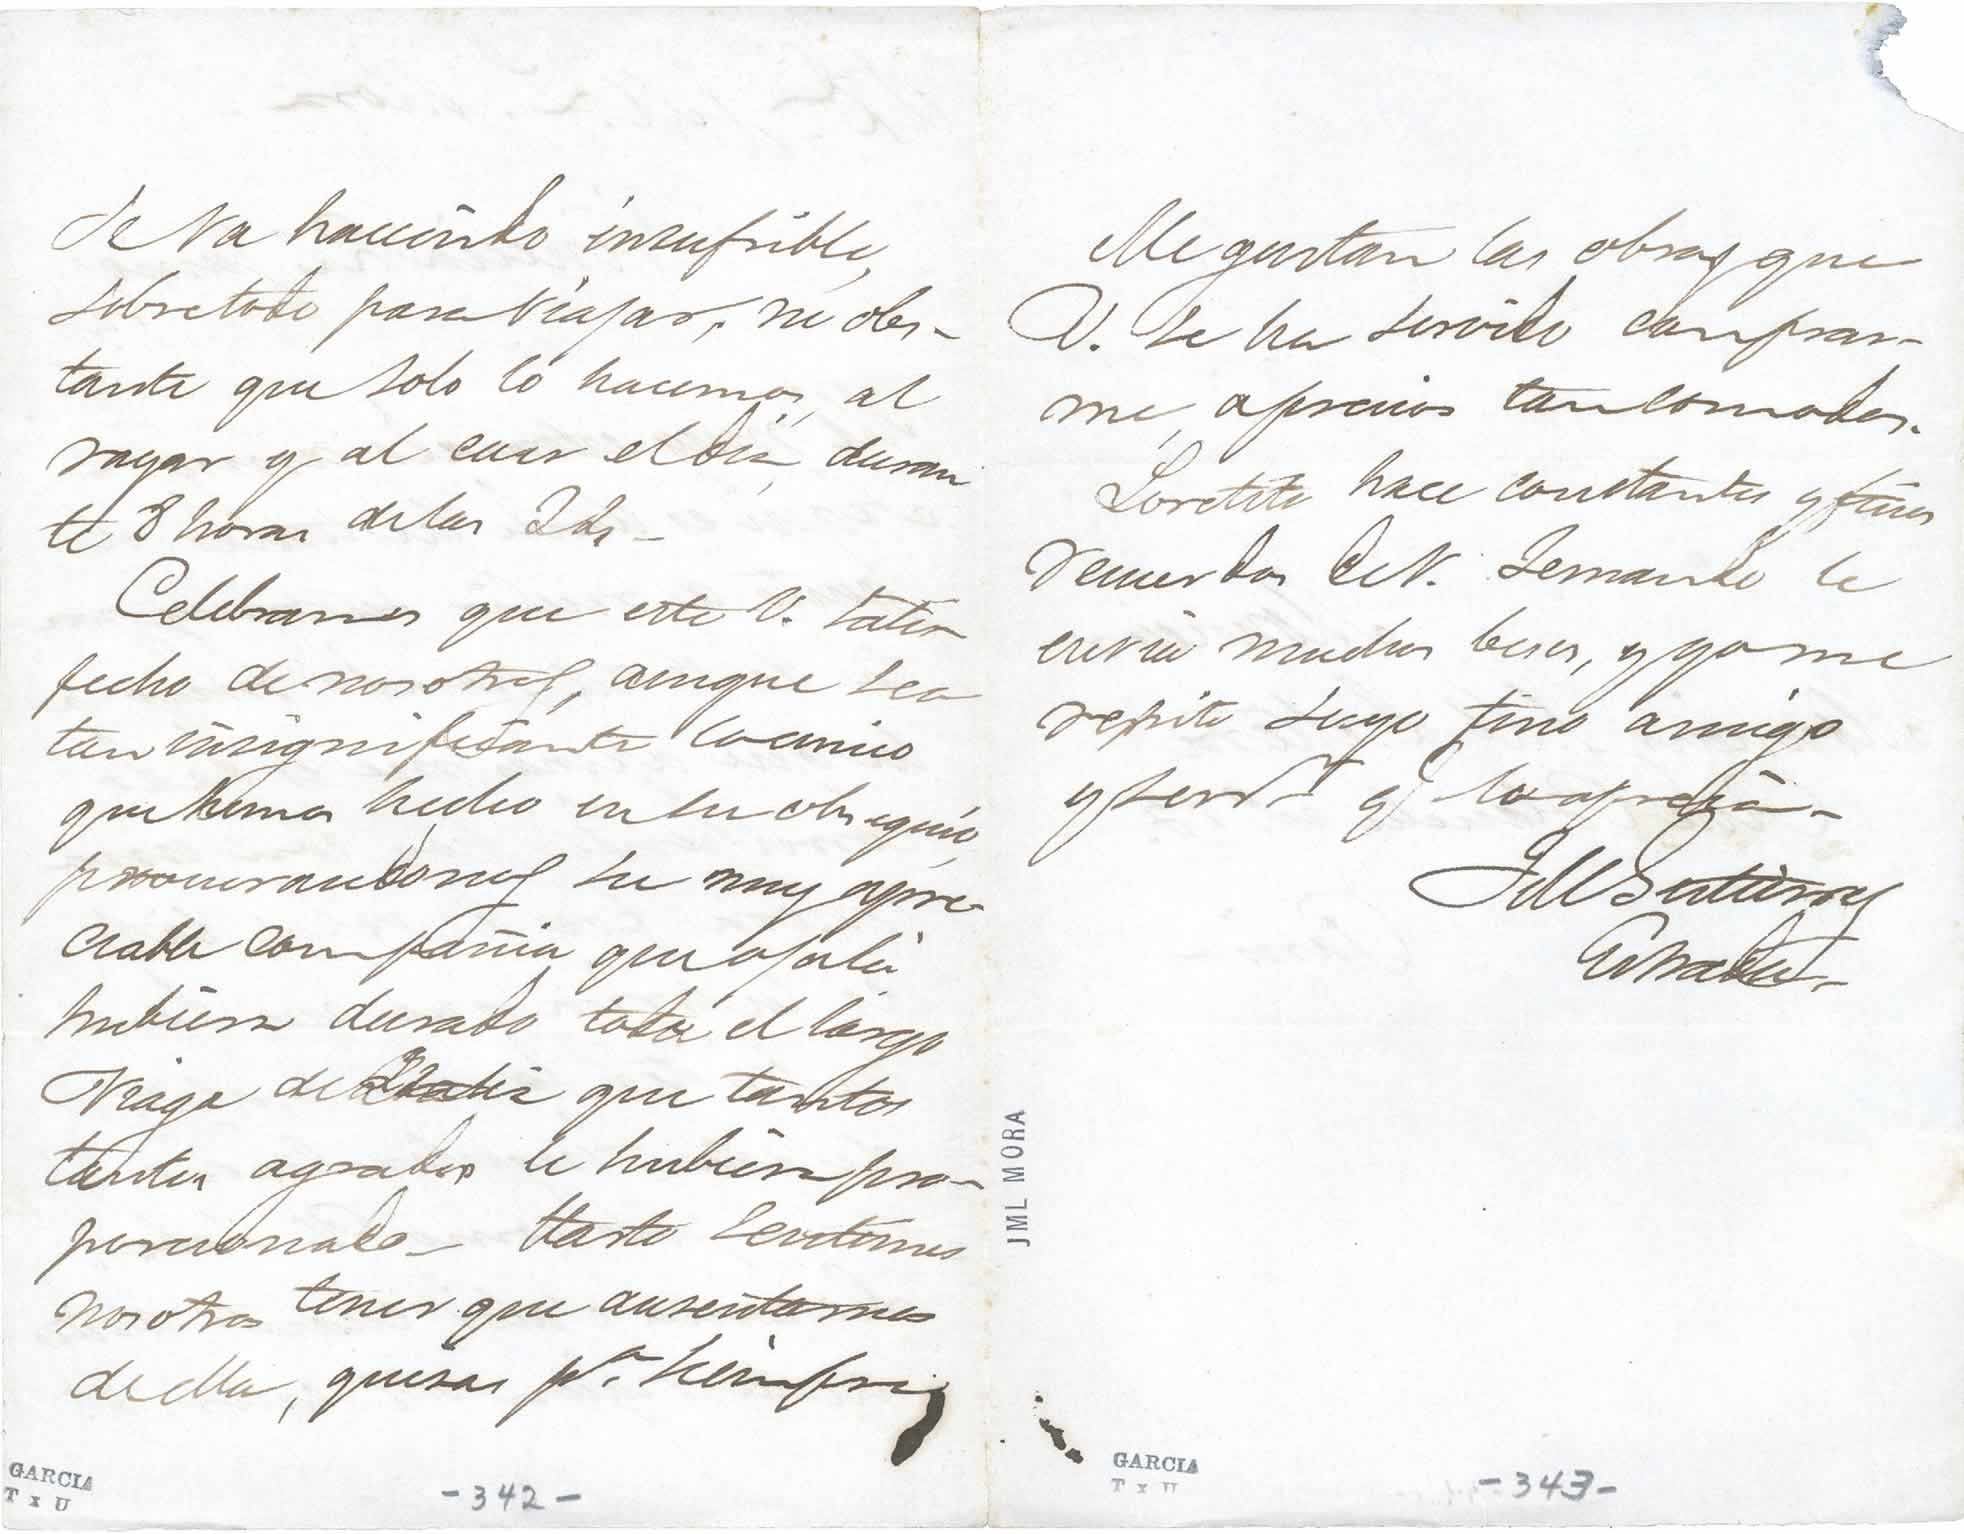 se va haciendo insufrible,
sobretodo para viajar, no obs-
tante que solo lo hacemos, al
rayar y al caer el dia, duran
te 8 horas de las 24.
Celebramos que este V. satis
fecho de nosotros, aunque sea
tan insignificante lo unico
que hemos hecho en su obsequio,
procurandonos su muy apre-
ciable compañia que ojalá
hubiera durado todo el largo
viage de que tantos
tantos agrados le hubiera pro-
porcionado. Harto sentimos
nosotros tener que ausentarnos
de ella, quisas pa. siempre
GARCIA
T x U
-342-
Me gustan las obras que
V. se ha servido comprar-
me, a precios tan comodos.
Loretito hace constantes y finos
recuerdos de V. Fernando le
envia muchos besos, y yo me
repito suyo fino amigo
y serv.r q. lo aprecia.
JM Gutierrez
Estrada.
JML MORA
GARCIA
T x U
-343-